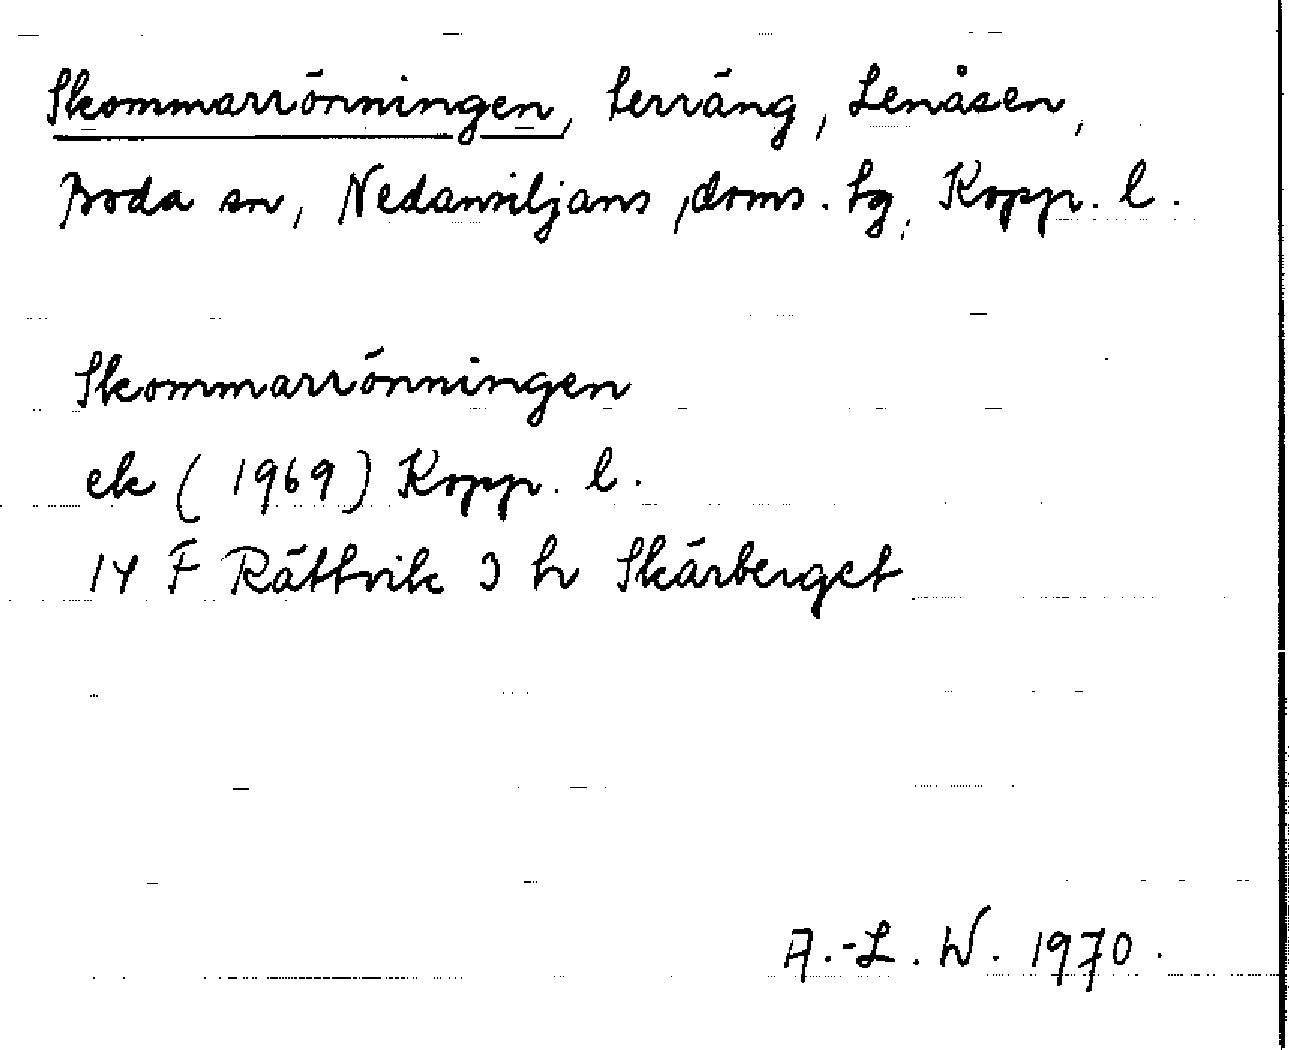 Skommarrönningen, terräng, Lenåsen,
Boda sn, Nedansiljans, doms. hg, Kopp. l.
Skommarrönningen
ek (1969) Kopp. l.
14 F Rättvik 3 h Skärberget
A.-L. W. 1970.